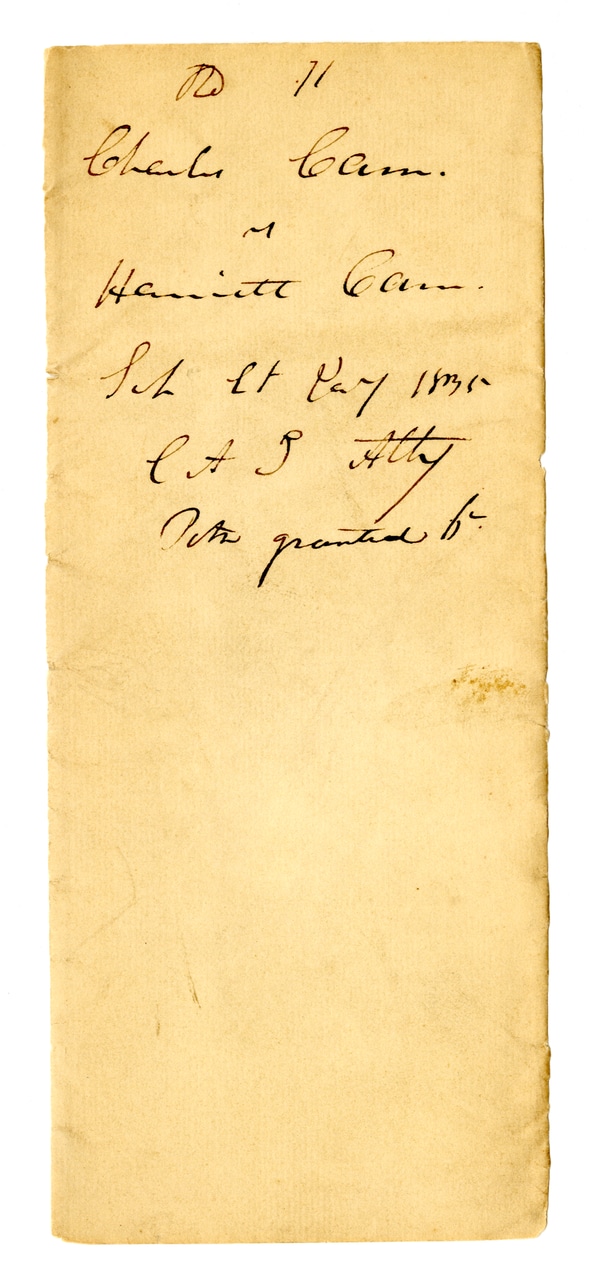 71
Charles Cam.
vs
Harriett Cam.
Ct 1835
C A S Atty
Petn granted